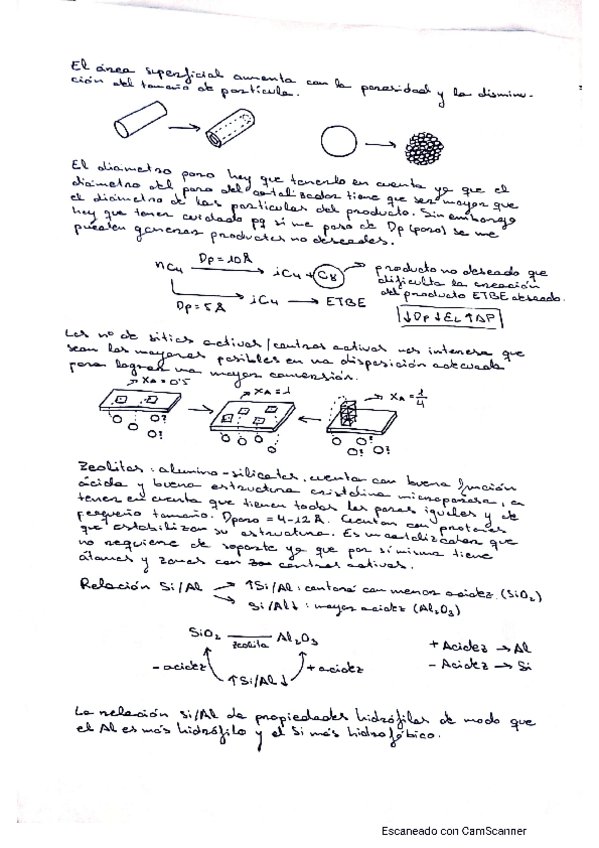 El área superficial aumenta con la porosidad y la disminu-
ción del tamaño de partícula.
El diámetro poro hay que tenerlo en cuenta ya que el
diámetro del poro del catalizador tiene que ser mayor que
el diámetro de las partículas del producto. Sin embargo
hay que tener cuidado pq si me paso de Dp (poro) se me
pueden generar productos no deseados.
nC4 Dp = 10Å iC4 + C8 producto no deseado que
dificulta la creación
del producto ETBE deseado.
Dp = 5Å iC4 → ETBE
↓Dp ↓EL ↑ΔP
Los nº de sitios activos/centros activos nos interesa que
sean los mayores posibles en una disposición adecuada
para lograr una mayor conversión.
XA = 0'5 XA = 1 XA = 1/4
O? O? O? O? O? O?
Zeolitas: alumino-silicatos, cuentan con buena función
ácida y buena estructura cristalina microporosa, a
tener en cuenta que tienen todos los poros iguales y de
pequeño tamaño. Dporo = 4-12Å. Cuentan con protones
que estabilizan su estructura. Es un catalizador que
no requiere de soporte ya que por sí misma tiene
átomos y zonas con centros activos.
Relación Si/Al → ↑Si/Al: contará con menor acidez. (SiO2)
→ Si/Al↓: mayor acidez (Al2O3)
SiO2 zeolita Al2O3
- acidez ↑Si/Al↓ + acidez
+ Acidez → Al
- Acidez → Si
La relación Si/Al da propiedades hidrófilas de modo que
el Al es más hidrófilo y el Si más hidrofóbico.
Escaneado con CamScanner